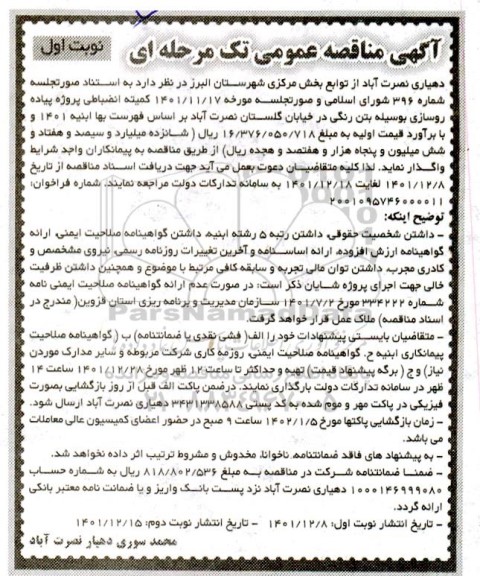 آگهی مناقصه عمومی تک مرحله ای
نوبت اول
دهیاری نصرت آباد از توابع بخش مرکزی شهرستان البرز در نظر دارد به استناد صورتجلسه
شماره ۳۹۶ شورای اسلامی و صورتجلسه مورخه ۱۴۰۱/۱۱/۱۷ کمیته انضباطی پروژه پیاده
روسازی بوسیله بتن رنگی در خیابان گلستان نصرت آباد بر اساس فهرست بها ابنیه ۱۴۰۱ و
با برآورد قیمت اولیه به مبلغ ۱۶/۳۷۶/۰۵۰/۷۱۸ ریال ( شانزده میلیارد و سیصد و هفتاد و
شش میلیون و پنجاه هزار و هفتصد و هجده ریال) از طریق مناقصه به پیمانکاران واجد شرایط
واگذار نماید. لذا کلیه متقاضیان دعوت بعمل می آید جهت دریافت اسناد مناقصه از تاریخ
۱۴۰۱/۱۲/۸ لغایت ۱۴۰۱/۱۲/۱۸ به سامانه تدارکات دولت مراجعه نمایند. شماره فراخوان:
۲۰۰۱۰۹۵۷۴۶۰۰۰۰۱۱
توضیح اینکه:
- داشتن شخصیت حقوقی، داشتن رتبه ۵ رشته ابنیه، داشتن گواهینامه صلاحیت ایمنی، ارائه
گواهینامه ارزش افزوده، ارائه اساسنامه و آخرین تغییرات روزنامه رسمی، نیروی مشخصص و
کادری مجرب، داشتن توان مالی تجربه و سابقه کافی مرتبط با موضوع و همچنین داشتن ظرفیت
خالی جهت اجرای پروژه شایان ذکر است: در صورت عدم ارائه گواهینامه صلاحیت ایمنی نامه
شماره ۳۳۴۲۲۲ مورخ ۱۴۰۱/۷/۲ سازمان مدیریت و برنامه ریزی استان قزوین( مندرج در
اسناد مناقصه) ملاک عمل قرار خواهد گرفت.
- متقاضیان بایستی پیشنهادات خود را الف( فشی نقدی یا ضمانتنامه) ب ( گواهینامه صلاحیت
پیمانکاری ابنیه ح، گواهینامه صلاحیت ایمنی، روزمه کاری شرکت مربوطه و سایر مدارک موردن
نیاز) و ج ( برگه پیشنهاد قیمت) تهیه و حداکثر تا ساعت ۱۲ ظهر مورخ ۱۴۰۱/۱۲/۲۸ ساعت ۱۴
ظهر در سامانه تدارکات دولت بارگذاری نمایند. درضمن پاکت الف قبل از روز بازگشایی بصورت
فیزیکی در پاکت مهر و موم شده به کد پستی ۳۴۳۱۳۳۸۵۸۸ دهیاری نصرت آباد ارسال شود.
- زمان بازگشایی پاکتها مورخ ۱۴۰۲/۱/۵ ساعت ۹ صبح در حضور اعضای کمیسیون عالی معاملات
می باشد.
- به پیشنهاد های فاقد ضمانتنامه، ناخوانا، مخدوش و مشروط ترتیب اثر داده نخواهد شد.
- ضمنا ضمانتنامه شرکت در مناقصه به مبلغ ۸۱۸/۸۰۲/۵۳۶ ریال به شماره حساب
۱۰۰۰۱۴۶۹۹۹۰۸۰ دهیاری نصرت آباد نزد پست بانک واریز و یا ضمانت نامه معتبر بانکی
ارائه گردد.
- تاریخ انتشار نوبت اول: ۱۴۰۱/۱۲/۸ - تاریخ انتشار نوبت دوم: ۱۴۰۱/۱۲/۱۵
محمد سوری دهیار نصرت آباد